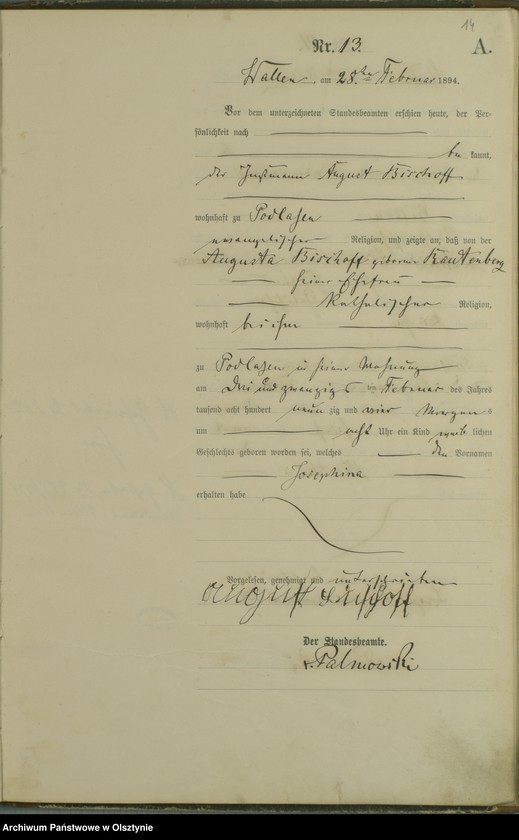 14
Nr. 13.
A.
Wallen, am 28. ten Februar 1894.
Vor dem unterzeichneten Standesbeamten erschien heute, der Per-
sönlichkeit nach
be kannt,
der Instmann August Bischoff
wohnhaft zu Podlasen
evangelischer Religion, und zeigte an, daß von der
Augusta Bischoff geborene Rautenberg
seiner Ehefrau
katholischer Religion,
wohnhaft bei ihm
zu Podlasen in seiner Wohnung
am drei und zwanzigs ten Februar des Jahres
tausend acht hundert neun zig und vier Morgen s
um acht Uhr ein Kind weib lichen
Geschlechts geboren worden sei, welches den Vornamen
Josephina
erhalten habe
Vorgelesen, genehmigt und unterschrieben
August Bischoff
Der Standesbeamte.
v. Palmowski
Archiwum Państwowe w Olsztynie